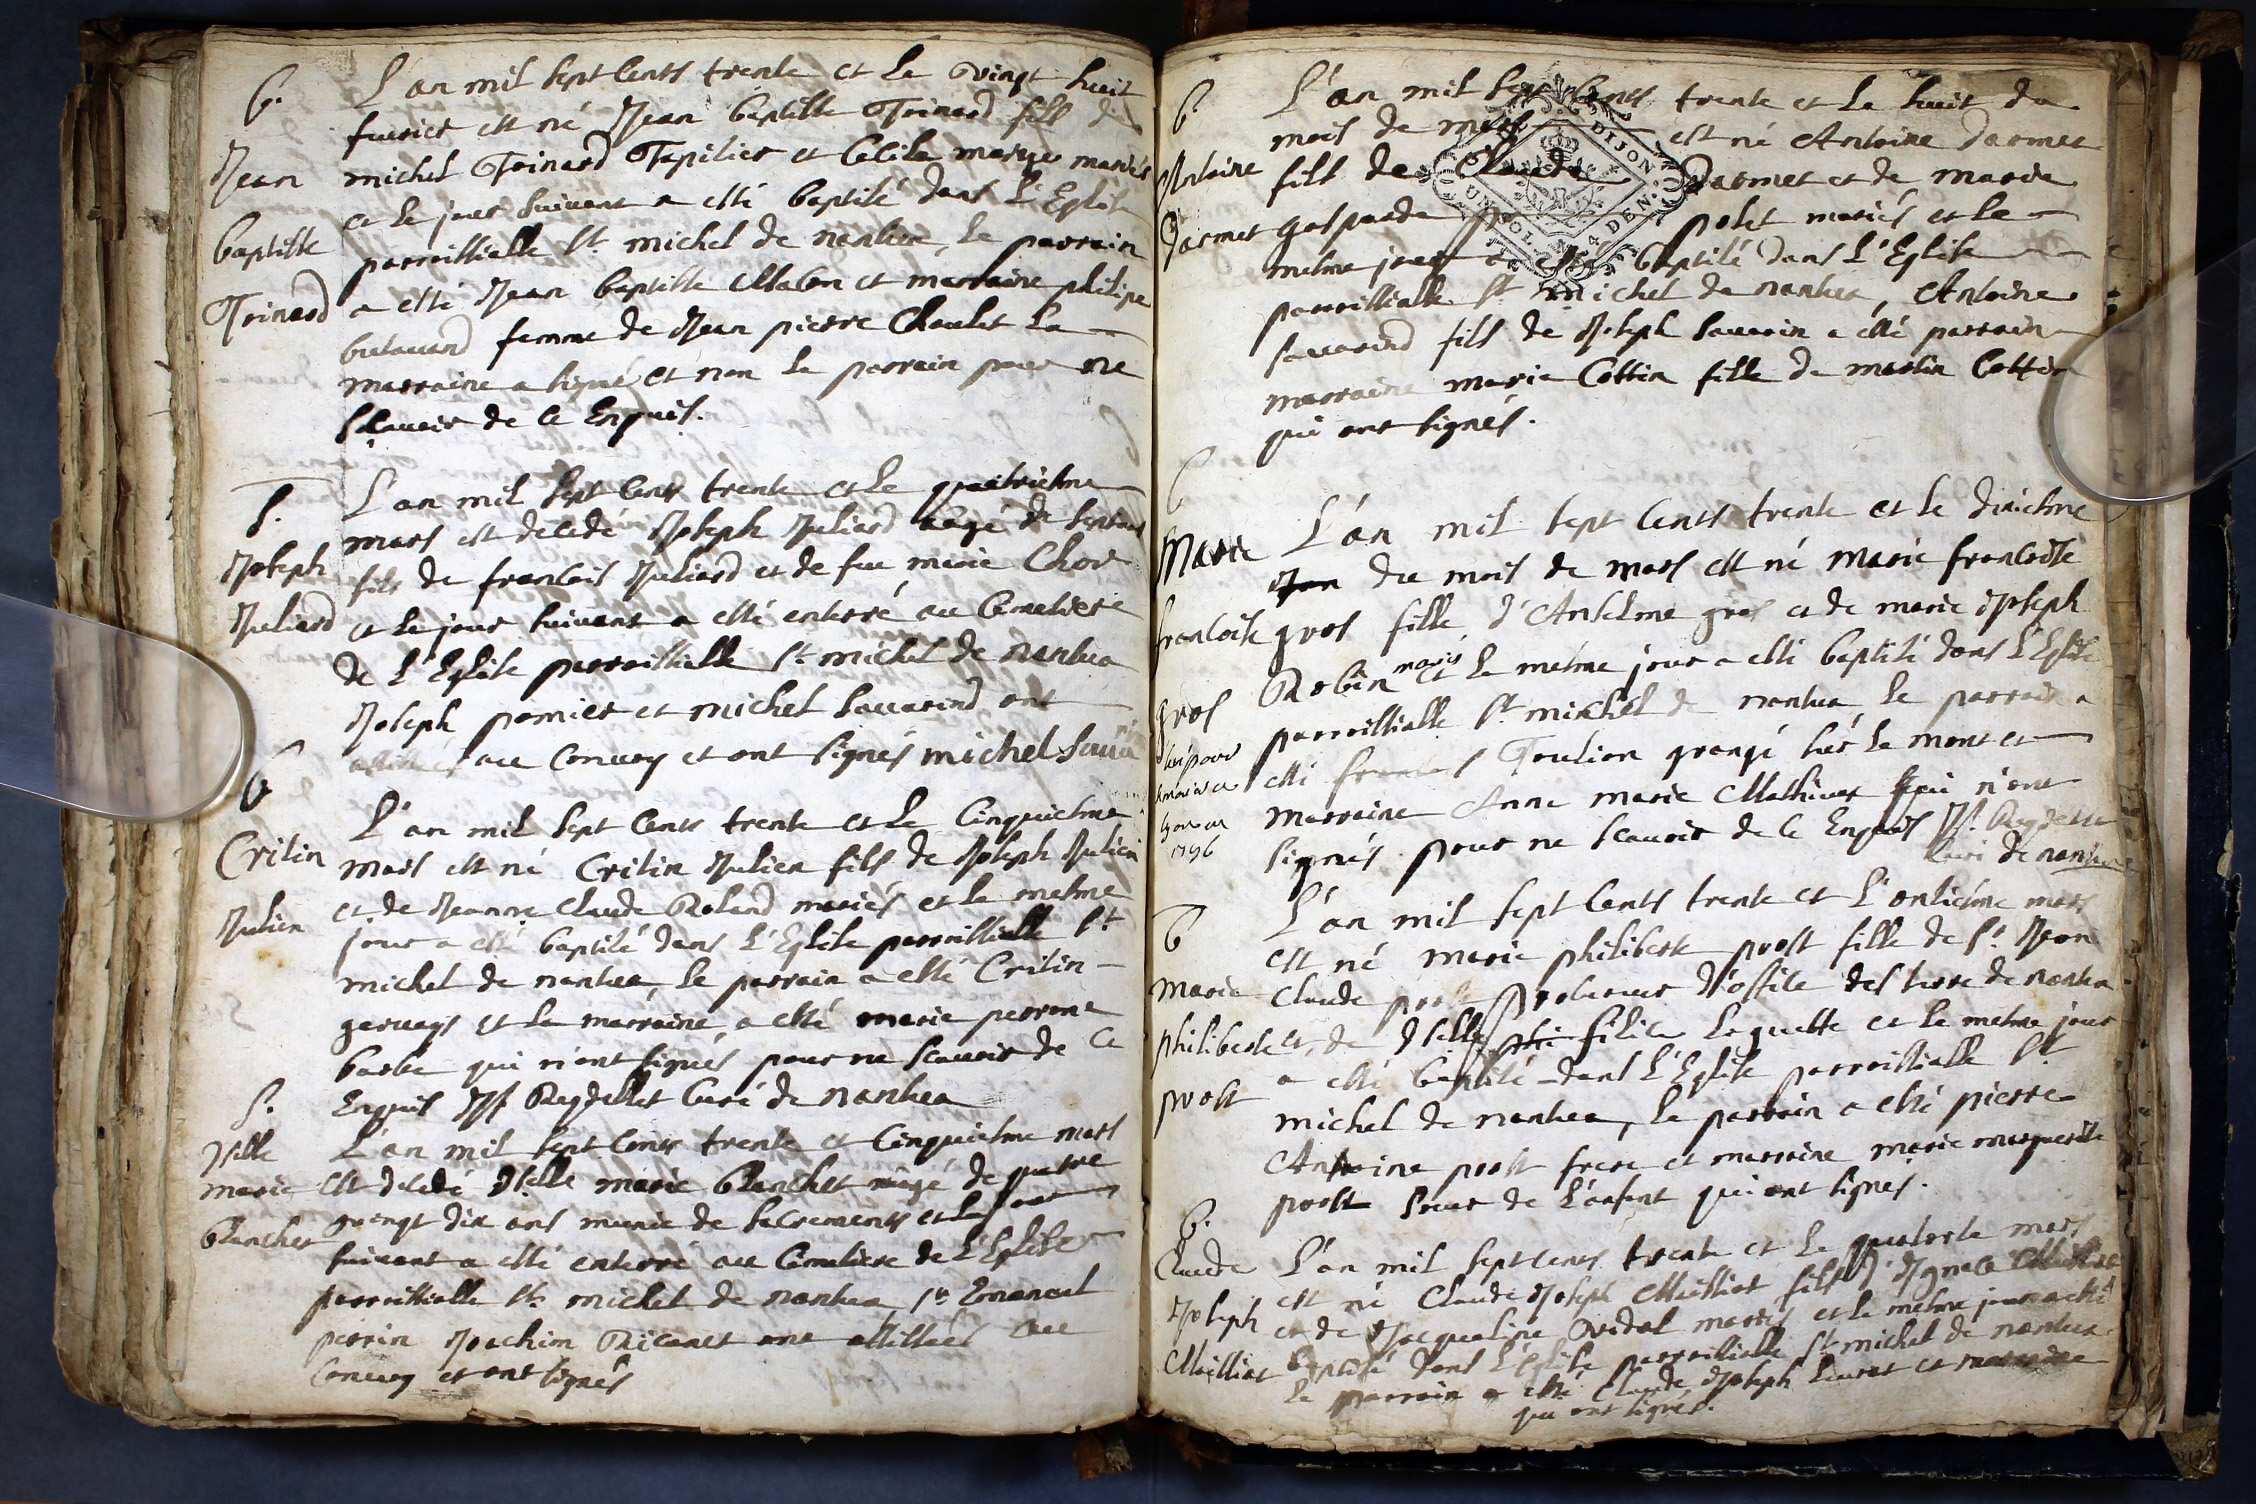 B.
Jean
baptiste
Toinard
L'an mil sept cents trente et le vingt huit
feurier est né Jean baptiste Toinard fils de
michel Toinard Tapilier et Cecile marys mariés
et le jour suivant a esté baptisé dans l'Eglise
parroissialle St. michel de nantua, le parrain
a esté Jean baptiste et marraine philipe
femme de Jean pierre Chaulet la
marraine a signé, et non le parrain pour ne
sçavoir de ce Enquis.
S.
Joseph
Juliard
L'an mil sept cents trente et le quatriesme
mars est décédé Joseph Juliard aagé de
fils de francois Juliard et de feu marie
et le jour suivant a esté enterré au Cimetiere
de l'Eglise parroissialle St. michel de nantua
Joseph pomier et michel Sauarind ont
au convoy et ont signés michel
B
Critin
Julien
L'an mil sept cents trente et le Cinquiesme
mars est né Critin Julien fils de Joseph Julien
et de Jeanne claude Roland mariés et le mesme
jour a esté baptisé dans l'Eglise parroissialle St.
michel de nantua, le parrain a esté Critin
geruays et la marraine, a esté marie perrone
barbe qui n'ont signés pour ne scauoir de ce
Enquis Curé de nantua
S.
Dlle
marie
blanchet
L'an mil sept cents trente et Cinquiesme mars
est décédé Dlle marie blanchet aagé de quatre
vingt dix ans munie de sacrements et le jour
suiuant a esté enterré au Cimetiere de l'Eglise
parroissialle St. michel de nantua, Sr. Emanuel
perrin Joachim Ricanet ont assistés au
Conuoy et ont signés
B.
Antoine
Darmet
L'an mil sept cents trente et le huit du
mois de mars est né Antoine darmet
fils de Claude Darmet et de marie
gasparde polet mariés et le
mesme jour a esté baptisé dans l'Eglise
parroissialle St. michel de nantua, Antoine
sauarind fils de Joseph sauarin a esté parrain
marraine marie Cottin fille de martin Cottin
qui ont signés.
DIJON
4 DEN.
B
Marie
francoise
gros
1796
L'an mil sept cents trente et le dixiesme
du mois de mars est né marie francoise
gros fille d'Anselme gros et de marie Joseph
Robin mariés et le mesme jour a esté baptisé dans l'Eglise
parroissialle St. michel de nantua le parrain a
esté Toulion grangé sur le mont et
marraine Anne marie Mathieu qui n'ont
signés pour ne scauoir de ce Enquis
Curé de nantua
B
Marie
philiberte
prost
L'an mil sept cents trente et l'onsiesme mars
est né marie philiberte prost fille de Sr. Jean
claude prost procureur d'office des terre de nantua
et, de Dlle laquelle et le mesme jour
a esté baptisé dans l'Eglise parroissialle St.
michel de nantua, le parrain a esté pierre
Antoine prost frere et marraine marie marguerite
prost soeur de l'anfant qui ont signés.
B.
Claude
Joseph
Mailliat
L'an mil sept cents trente et le quatorse mars
est né Claude Joseph Mailliat fils d'Ignace Mailliat
et de Jacqueline vidal mariés et le mesme jour a esté
baptisé dans l'Eglise parroissialle St michel de nantua
le parrain a esté Claude Joseph et marraine
qui ont signés.